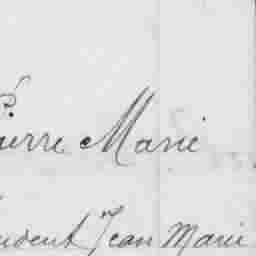 ierre Marie
udent Jean Marie